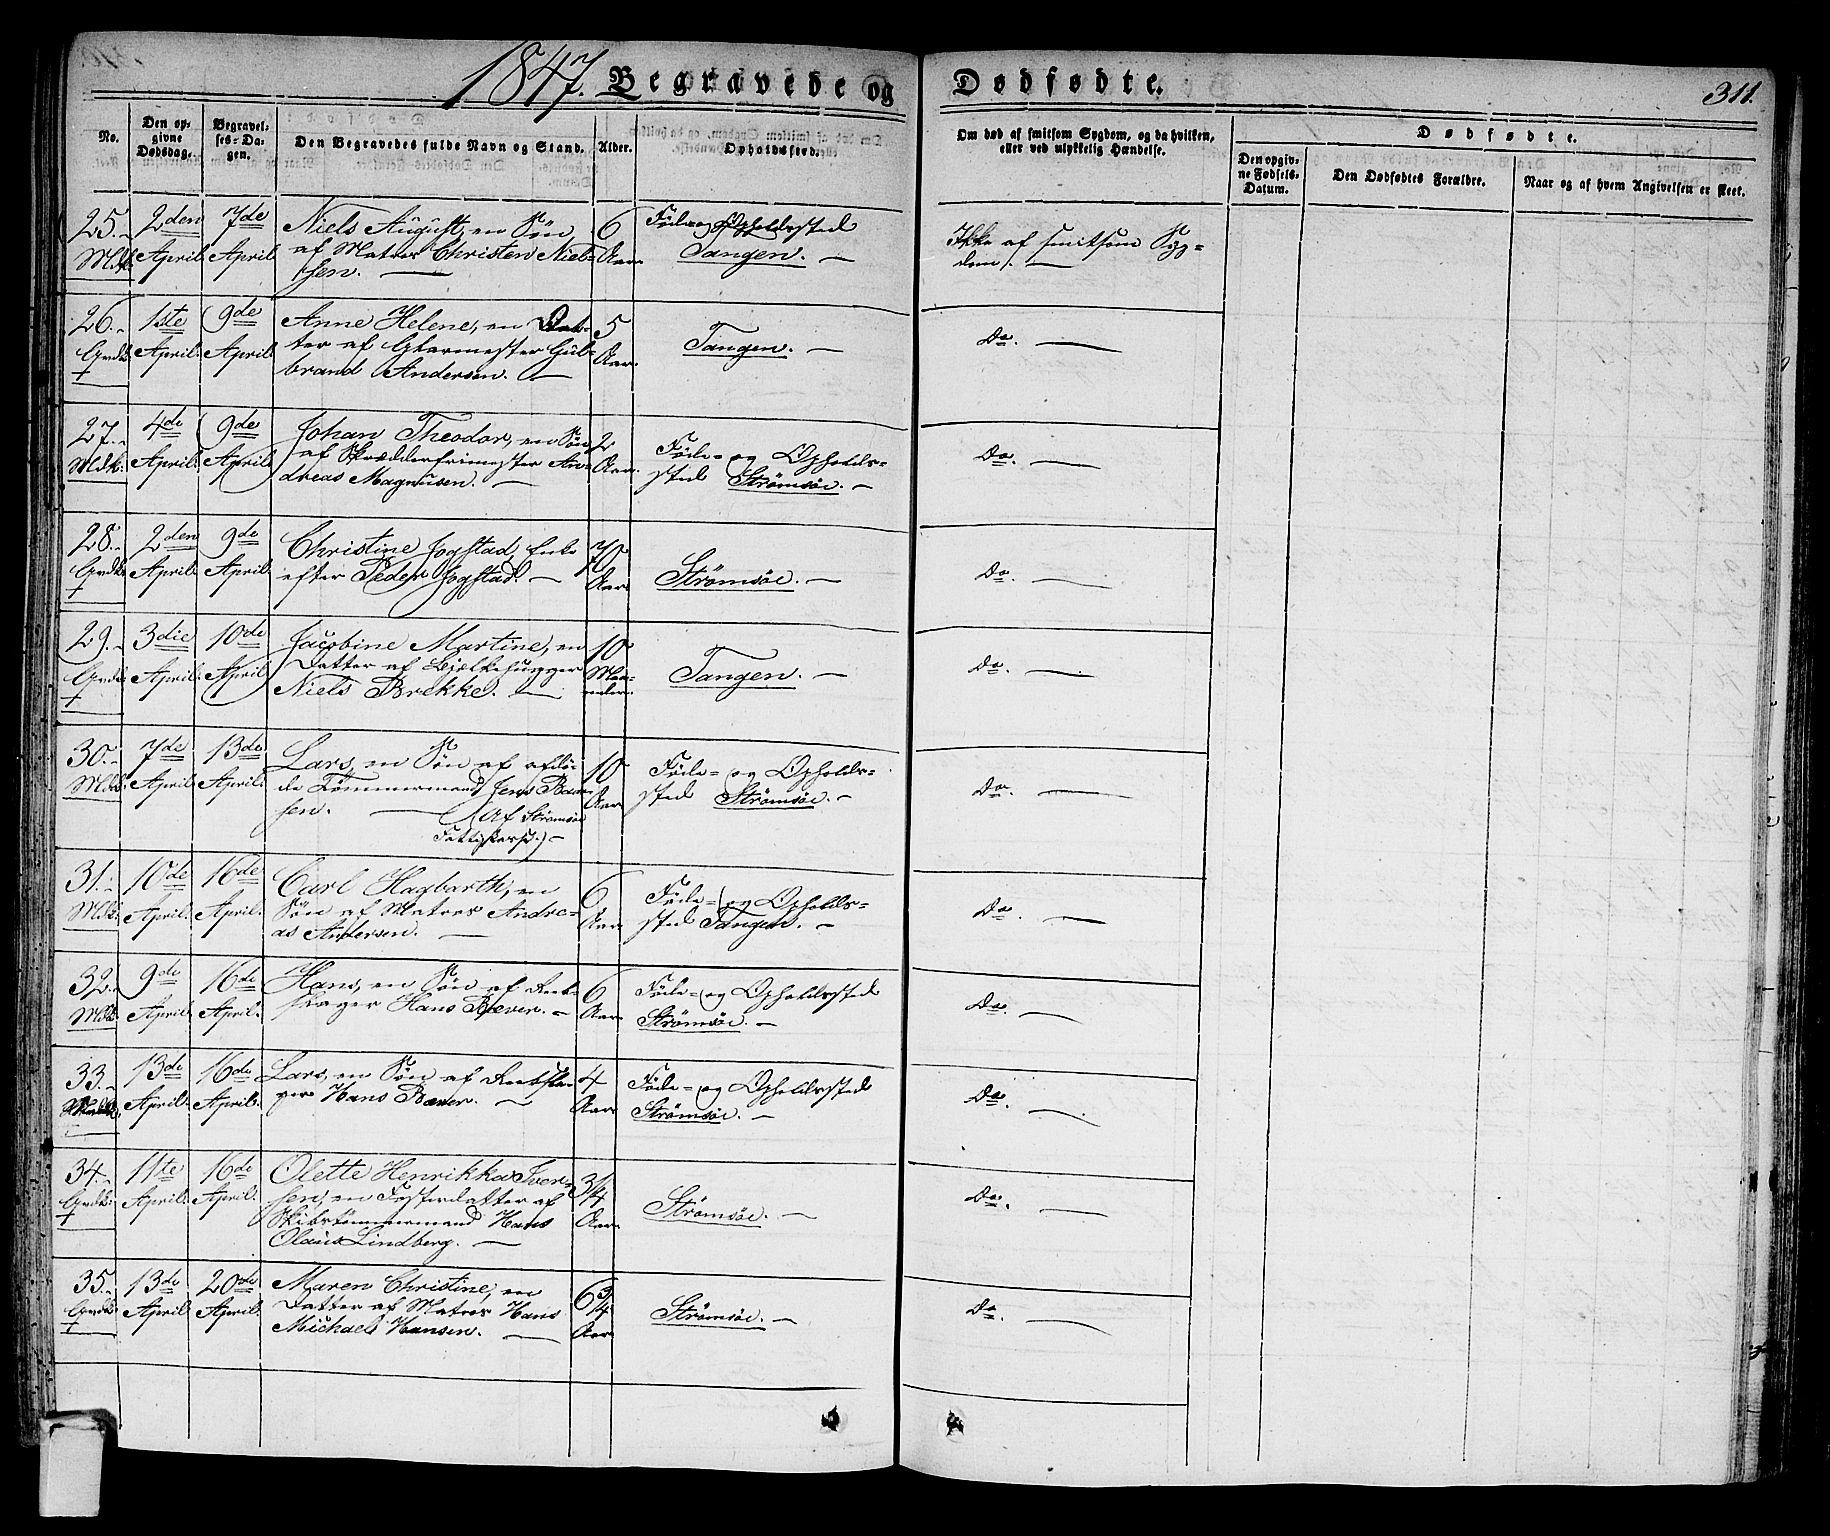 1847. Begravede og Dødfødte. 311.
No.
Den opgivne Dødsdag.
Begravelses-Dagen.
Den Begravedes fulde Navn og Stand.
Alder.
Opholdssted.
Om død af smitsom Sygdom, og da hvilken, eller ved ulykkelig Hændelse.
Dødfødte.
Den opgivne Fødsels-Datum.
Den Dødfødtes Forældre.
Naar og af hvem Angivelsen er skeet.
25. 2den 7de Niels August, en Søn 6 Føde og Opholdssted Ikke af smitsom Syg-
Mdk. April. April af Matros Christen Niel- Aar. Tangen. — dom. —
sen. —
26. 1ste 9de Anne Helene, en Dat- 5 Tangen. — Do. —
Qvdk. April. April. ter af Glarmester Gul- Aar.
brand Andersen. —
27. 4de 9de Johan Theodor, en Søn 2 Føde- og Opholds- Do. —
Mdk. April. April. af Skrædderfrimester An- Aar. sted Strømsöe. —
dreas Magnusen. —
28. 2den 9de Christine Jogstad, Enke 70 Strømsöe. — Do. —
Qvdk. April. April. efter Peder Jogstad. — Aar.
29. 3die 10de Jacobine Martine, en 10 Tangen. — Do. —
Qvdk. April. April Datter af Bjelkehugger Maa-
Niels Brekke. — neder.
30. 7de 13de Lars, en Søn af afdö- 10 Føde- og Opholds- Do. —
Mdk. April. April. de Tømmermand Jens Aar sted Strömsöe. —
sen. — (Af Strømsöe
Fattigkasse.) —
31. 10de 16de Carl Hagbarth, en 6 Føde- og Opholds- Do. —
Mdk. April. April. Søn af Matros Andre- Aar. sted Tangen. —
as Andersen. —
32. 9de 16de Hans, en Søn af Reb- 6 Føde- og Opholdssted Do. —
Mdk. April. April. slager Hans Bever. — Aar. Strømsöe. —
33. 13de 16de Lars, en Søn af Rebsla- 4 Føde- og Opholdssted Do. —
April. April. ger Hans Bever. — Aar. Strømsöe. —
34. 11te 16de Olette Henrikka Iver- 3/4 Strømsöe. — Do. —
Qvdk. April. April. sen, en Fosterdatter af Aar.
Skibstømmermand Hans
Olaus Lindberg. —
35. 13de 20de Maren Christine, en 6 3/4 Strømsöe. — Do. —
Qvdk. April. April. Datter af Matros Hans Aar.
Michael Hansen. —